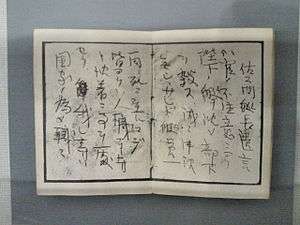 佐久間艇長遺言
小官ノ不注意ニヨリ
陛下ノ艇ヲ沈メ部下
ヲ殺ス誠ニ申訳
無シサレド艇員一
同死ニ至ルマデ
皆ヨクソノ職ヲ守
リ沈着ニ事ヲ處
セリ我レ等ハ
國家ノ為メ職ニ